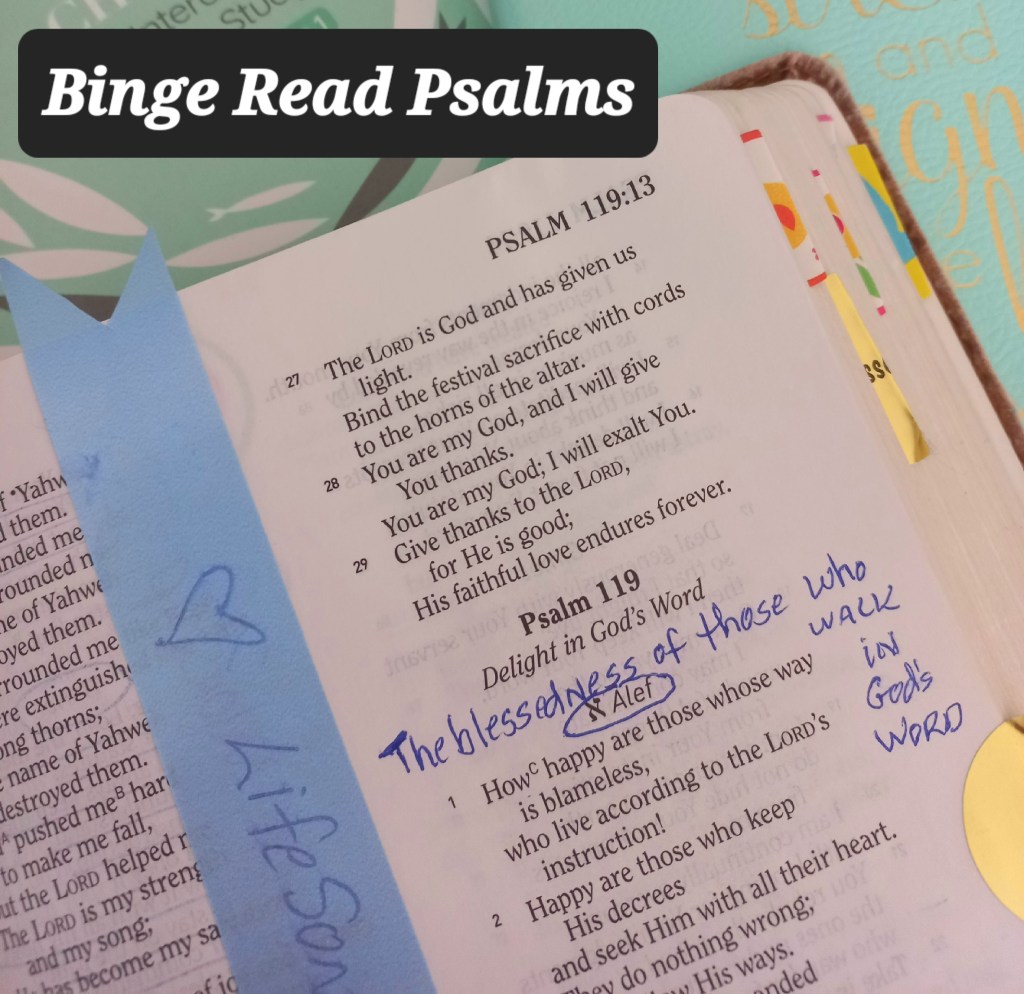 Binge Read Psalms
Stu
and
PSALM 119:13
27 The LORD is God and has given us
light.
Bind the festival sacrifice with cords
to the horns of the altar.
28 You are my God, and I will give
You thanks.
You are my God; I will exalt You.
29 Give thanks to the LORD,
for He is good;
His faithful love endures forever.
Psalm 119
Delight in God's Word
The blessedness of those who
WALK
in
God's
WORD
א Alef
1 How^C happy are those whose way
is blameless,
who live according to the LORD's
instruction!
2 Happy are those who keep
His decrees
and seek Him with all their heart.
They do nothing wrong;
His ways.
of •Yahw
them.
nded me
rounded
of Yahwe
oyed them.
rrounded me
extinguish
ong thorns;
name of Yahwe
destroyed them.
pushed me^B har
to make me fall,
but the LORD helped
The LORD is my streng
and my song;
has become my sa
Life Son